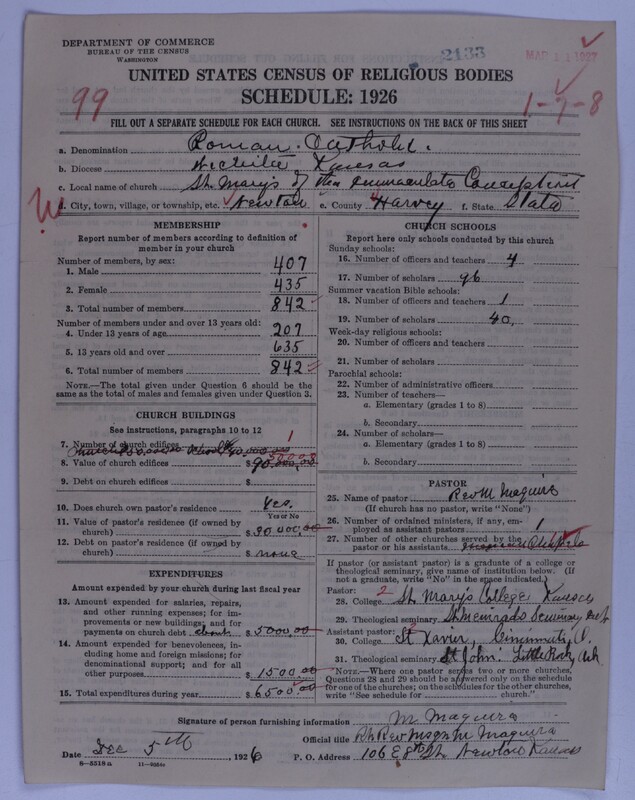 DEPARTMENT OF COMMERCE
BUREAU OF THE CENSUS
WASHINGTON
2133
UNITED STATES CENSUS OF RELIGIOUS BODIES
SCHEDULE: 1926
99
1-7-8
FILL OUT A SEPARATE SCHEDULE FOR EACH CHURCH. SEE INSTRUCTIONS ON THE BACK OF THIS SHEET
a. Denomination Roman Catholic.
b. Diocese Wichita Kansas
c. Local name of church St. Mary's of the Immaculate Conception
d. City, town, village, or township, etc. Newton e. County Harvey f. State State
MEMBERSHIP
Report number of members according to definition of
member in your church
Number of members, by sex:
1. Male 407
2. Female 435
3. Total number of members 842
Number of members under and over 13 years old:
4. Under 13 years of age 207
5. 13 years old and over 635
6. Total number of members 842
NOTE.—The total given under Question 6 should be
the same as the total of males and females given under Question 3.
CHURCH BUILDINGS
See instructions, paragraphs 10 to 12
7. Number of church edifices 1
50000
8. Value of church edifices $ 90,000,00
9. Debt on church edifices $
10. Does church own pastor's residence? Yes.
Yes or No
11. Value of pastor's residence (if owned by
church) $ 30000,00
12. Debt on pastor's residence (if owned by
church) $ none
EXPENDITURES
Amount expended by your church during last fiscal year
13. Amount expended for salaries, repairs,
and other running expenses; for im-
provements or new buildings; and for
payments on church debt $ 5000.00
14. Amount expended for benevolences,
including home and foreign missions; for
denominational support; and for all
other purposes $ 1500.00
15. Total expenditures during year $ 6500.00
CHURCH SCHOOLS
Report here only schools conducted by this church
Sunday schools:
16. Number of officers and teachers 4
17. Number of scholars 96
Summer vacation Bible schools:
18. Number of officers and teachers 1
19. Number of scholars 40,
Week-day religious schools:
20. Number of officers and teachers
21. Number of scholars
Parochial schools:
22. Number of administrative officers
23. Number of teachers—
a. Elementary (grades 1 to 8)
b. Secondary
24. Number of scholars—
a. Elementary (grades 1 to 8)
b. Secondary
PASTOR
25. Name of pastor Rev M Maguire
(If church has no pastor, write "None")
26. Number of ordained ministers, if any, em-
ployed as assistant pastors 1
27. Number of other churches served by the
pastor or his assistants
If pastor (or assistant pastor) is a graduate of a college or
theological seminary, give name of institution below. (If
not a graduate, write "No" in the space indicated.)
Pastor: 2
28. College St Mary's College Kansas
29. Theological seminary St Meinrads Seminary
Assistant pastor:
30. College St Xavier, Cincinnati, O.
31. Theological seminary St John' Little Rock, Ark
NOTE.—Where one pastor serves two or more churches,
Questions 28 and 29 should be answered only on the schedule
for one of the churches; on the schedules for the other churches,
write "See schedule for church."
Signature of person furnishing information M Maguire
Official title Rt Rev Msgr M Maguire
Date Dec 5th, 1926 P. O. Address 106 E 8th St. Newton Kansas
8—5518a 11—9254a